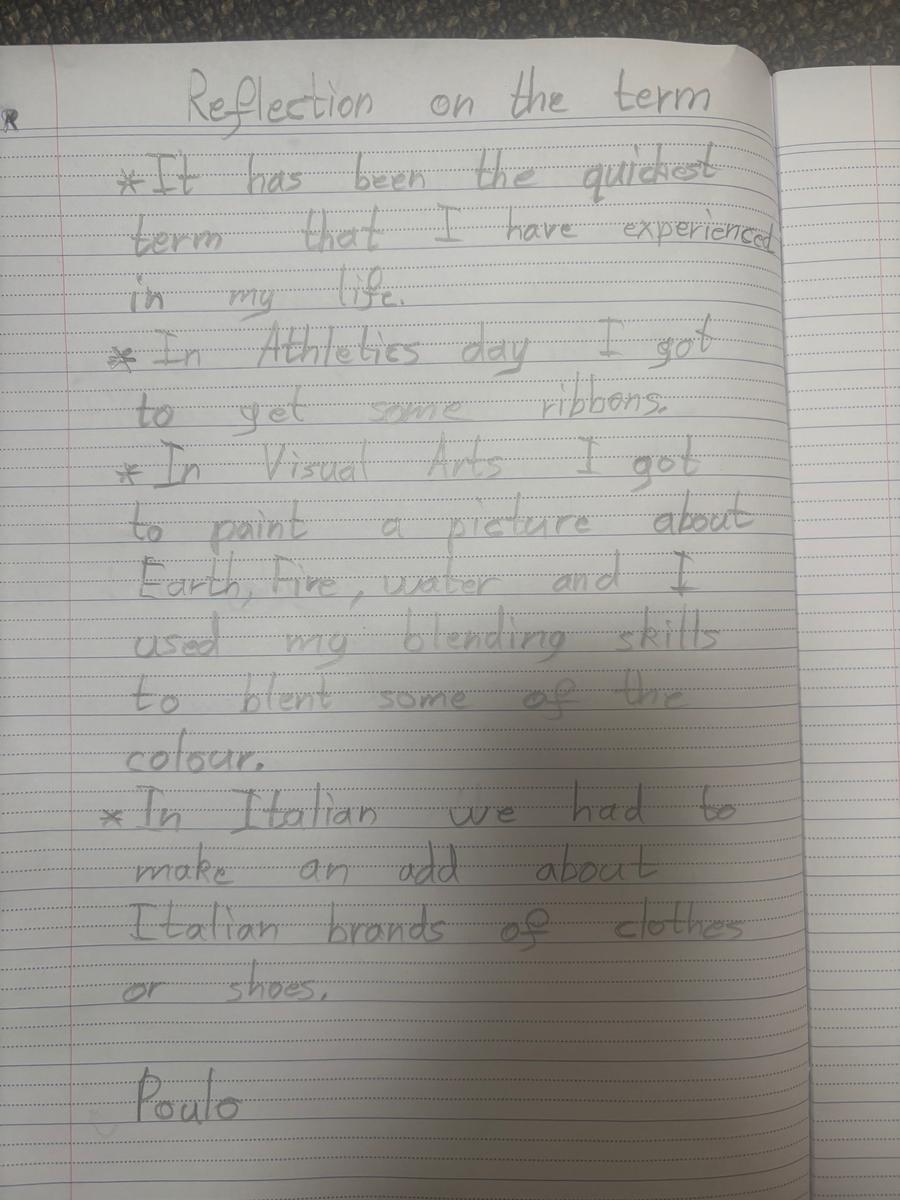 Reflection on the term
* It has been the quickest
term that I have experienced
in my life.
* In Athletics day I got
to get some ribbons.
* In Visual Arts I got
to paint a picture about
Earth, Fire, water and I
used my blending skills
to blent some of the
colour.
* In Italian we had to
make an add about
Italian brands of clothes
or shoes.
Poulo